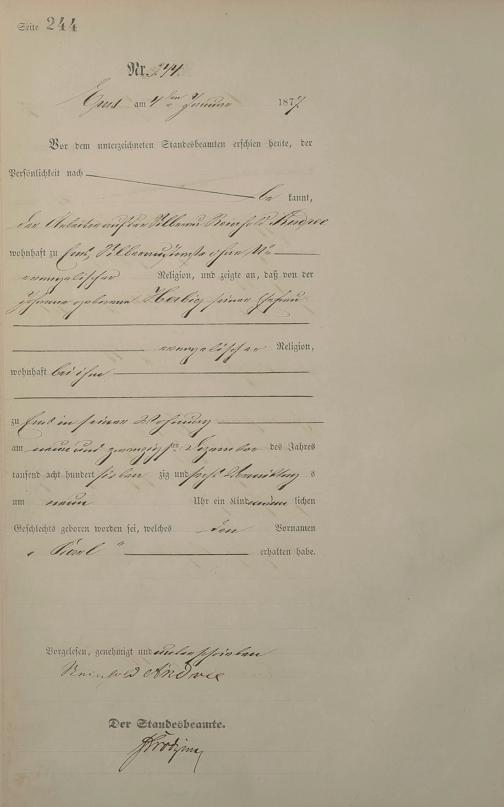 Seite 244
Nr. 244.
Ems am 4ten Januar 1877
Vor dem unterzeichneten Standesbeamten erschien heute, der
Persönlichkeit nach
be kannt,
der Arbeiter auf der Silberau Reinhold Andree
wohnhaft zu Ems, ohne
evangelischer Religion, und zeigte an, daß von der
geborene Herbig seiner Ehefrau
evangelischer Religion,
wohnhaft bei ihm
zu Ems in seiner Wohnung
am neun und zwanzigsten Dezember des Jahres
tausend acht hundert sieben zig und sechs Vormittag s
um neun Uhr ein Kind männ lichen
Geschlechts geboren worden sei, welches den Vornamen
" " erhalten habe.
Vorgelesen, genehmigt und unterschrieben
Reinhold Andree
Der Standesbeamte.